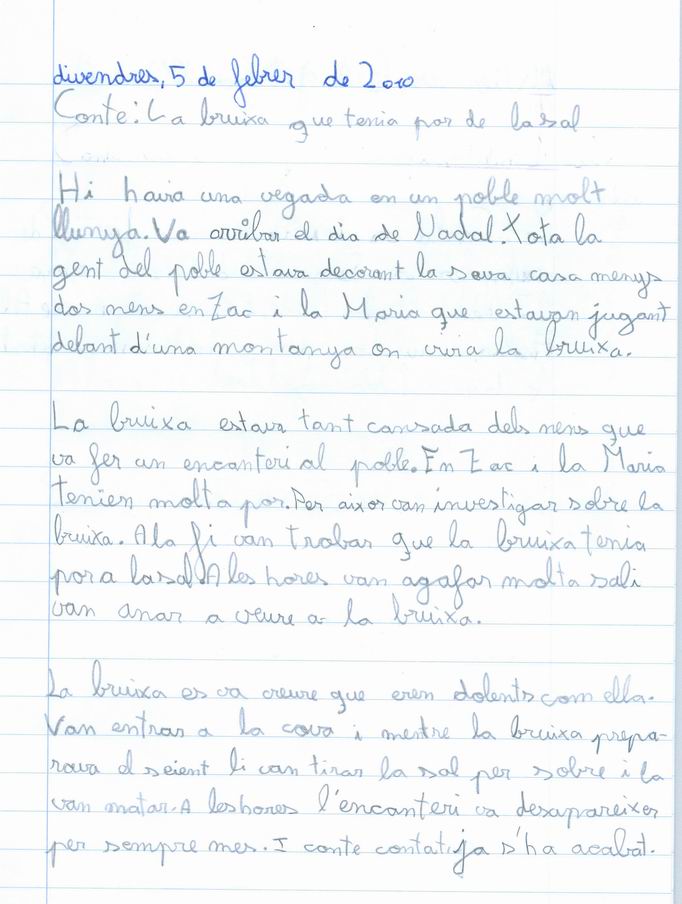 divendres, 5 de febrer de 2010
Conte: La bruixa que tenia por de la sal
Hi havia una vegada en un poble molt
llunya. Va arribar el dia de Nadal. Tota la
gent del poble estava decorant la seva casa menys
dos nens en Zac i la Maria que estavan jugant
debant d'una montanya on vivia la bruixa.
La bruixa estava tant cansada dels nens que
va fer un encanteri al poble. En Zac i la Maria
tenien molta por. Per aixor van investigar sobre la
bruixa. A la fi van trobar que la bruixa tenia
por a la sal. A les hores van agafar molta sal i
van anar a veure a la bruixa.
La bruixa es va creure que eren dolents com ella.
Van entrar a la cova i mentre la bruixa prepa-
rava el seient li van tirar la sal per sobre i la
van matar. A les hores l'encanteri va desapareixer
per sempre mes. I conte contat ja s'ha acabat.